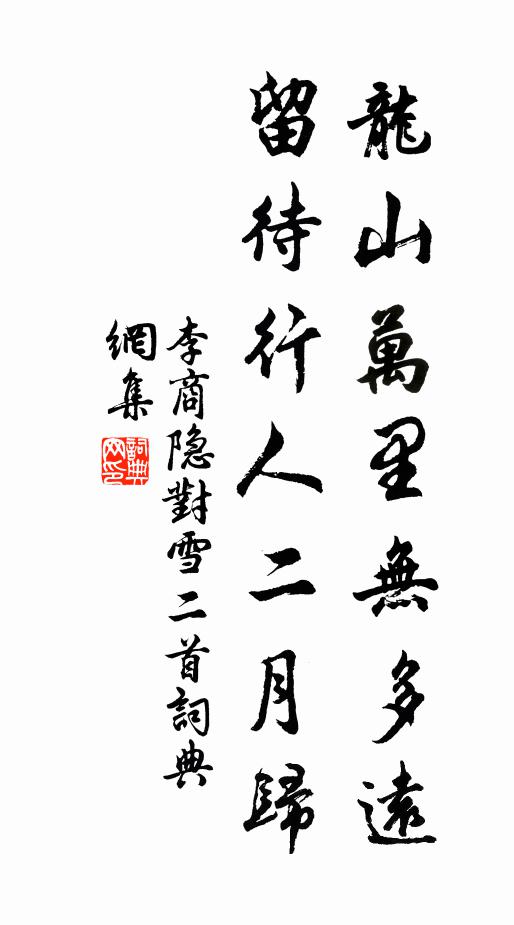 龍山萬里無多遠
留待行人二月歸
李商隐對雪二首詞典
網集
詞典
网印